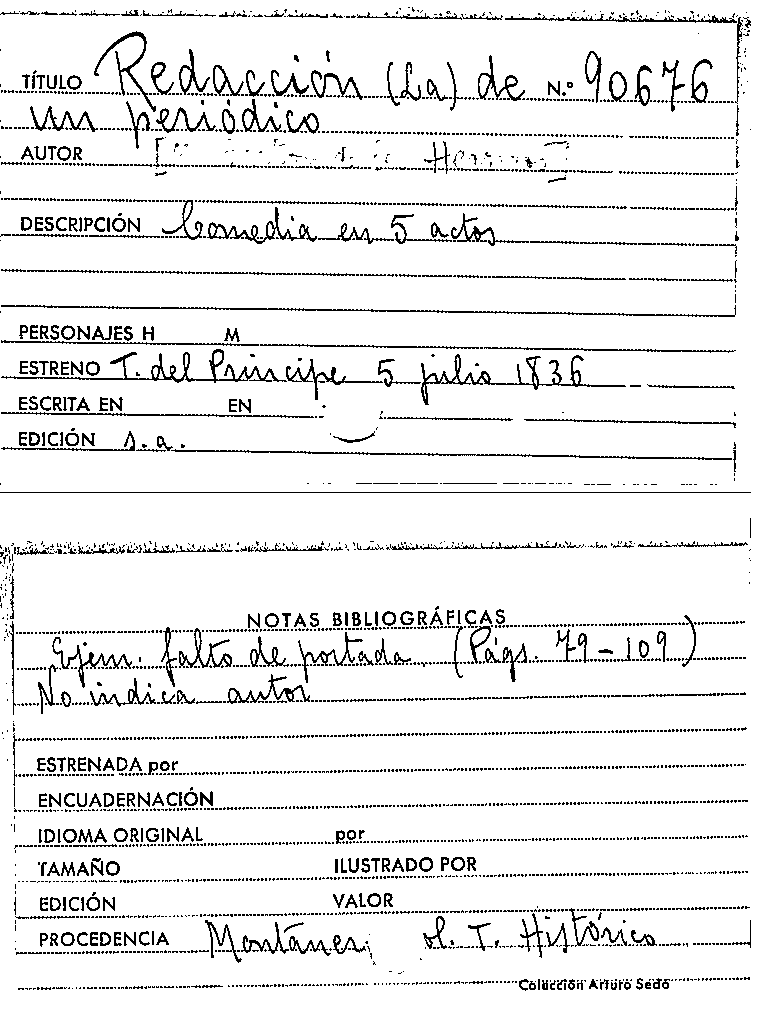 TÍTULO Redacción (La) de N.º 90676
un periódico
AUTOR [ de Herreros]
DESCRIPCIÓN Comedia en 5 actos
PERSONAJES H M
ESTRENO T. del Príncipe 5 julio 1836
ESCRITA EN EN
EDICIÓN s.a.
NOTAS BIBLIOGRÁFICAS
Ejem. falto de portada. (Págs. 79-109)
No indica autor
ESTRENADA por
ENCUADERNACIÓN
IDIOMA ORIGINAL por
TAMAÑO ILUSTRADO POR
EDICIÓN VALOR
PROCEDENCIA Montaner, T. Histórico
Colección Arturo Sedó